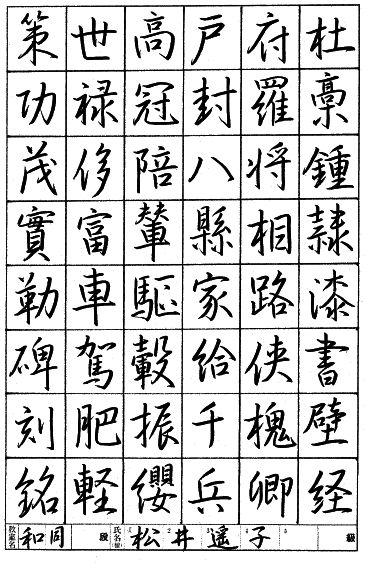 杜稾鍾隷漆書壁経
府羅将相路侠槐卿
戸封八縣家給千兵
高冠陪輦驅轂振纓
世禄侈富車駕肥軽
策功茂實勒碑刻銘
教室名 和同 段 氏名(号) 松井遥子 級